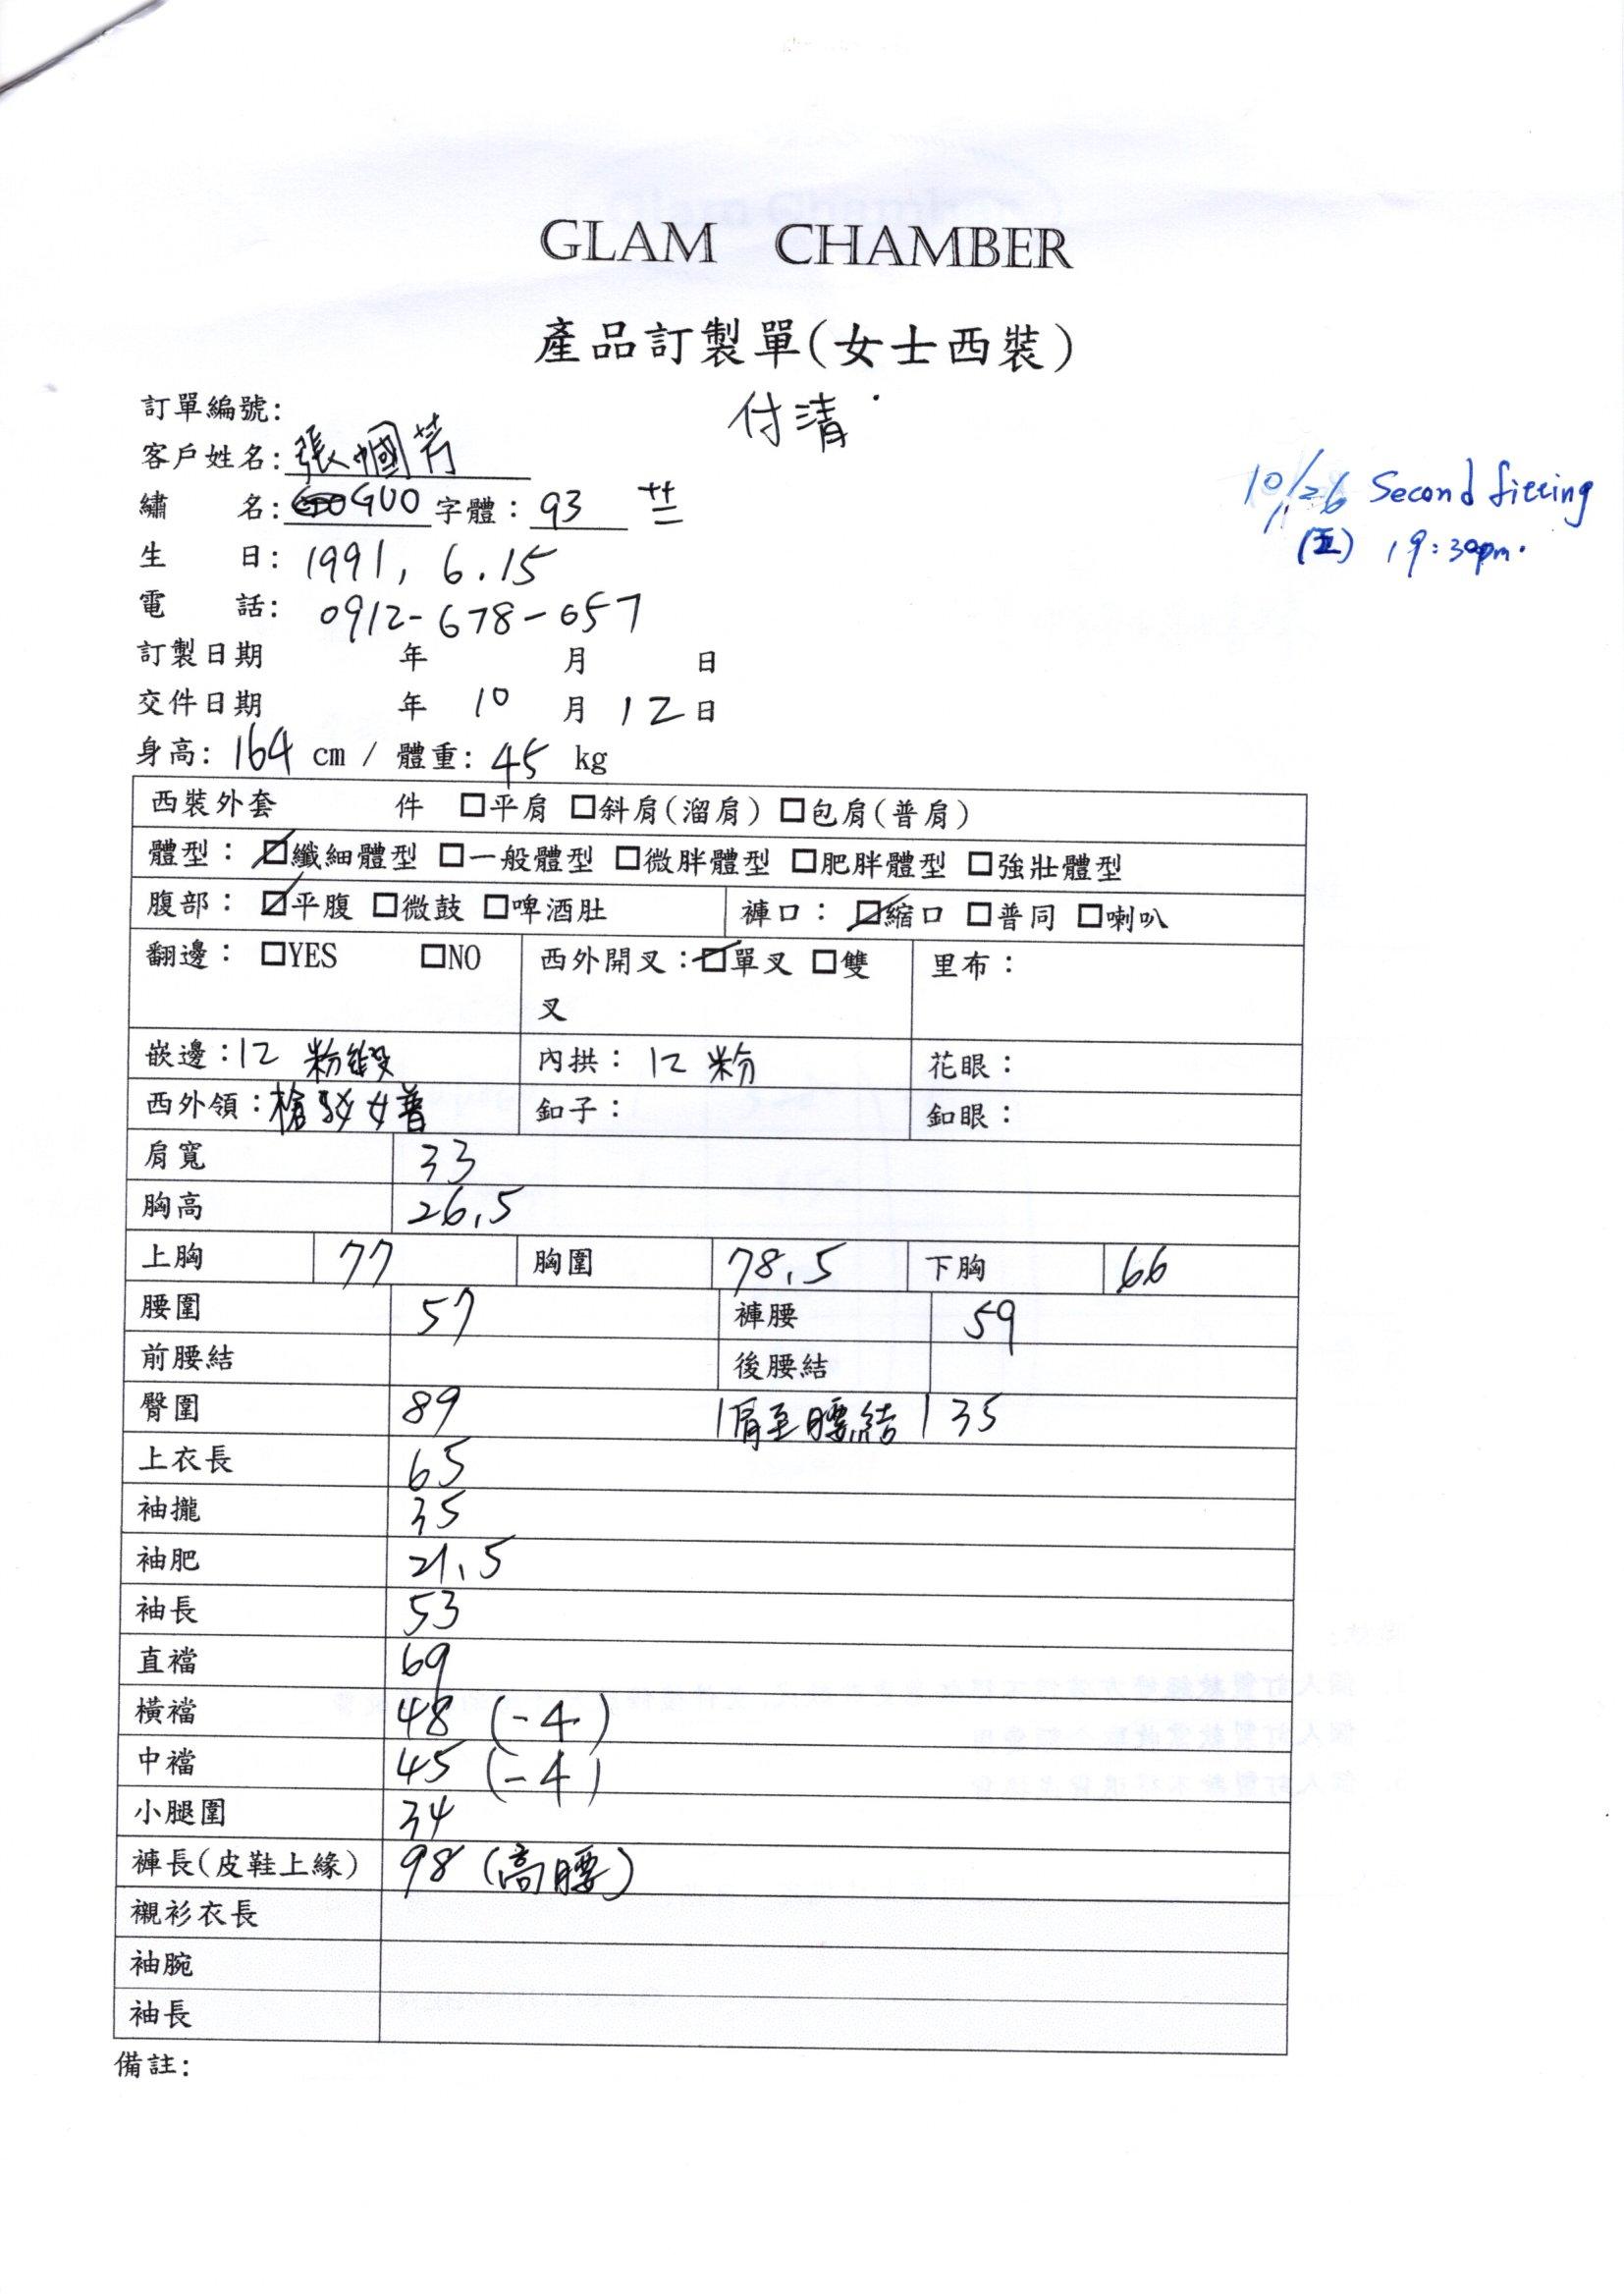 GLAM CHAMBER
產品訂製單(女士西裝)
訂單編號:
付清
客戶姓名:張幗芳
10/26 Second fitting
繡 名:GUO 字體:93
(五) 19:30pm.
生 日:1991, 6.15
電 話:0912-678-657
訂製日期 年 月 日
交件日期 年 10 月 12 日
身高: 164 cm / 體重: 45 kg
西裝外套 件 □平肩 □斜肩(溜肩) □包肩(普肩)
體型: ☑纖細體型 □一般體型 □微胖體型 □肥胖體型 □強壯體型
腹部: ☑平腹 □微鼓 □啤酒肚 褲口: ☑縮口 □普同 □喇叭
翻邊: □YES □NO 西外開叉:☑單叉 □雙叉 里布:
嵌邊:12 粉緞 內拱: 12 粉 花眼:
西外領:槍駁女普 釦子: 釦眼:
肩寬 33
胸高 26.5
上胸 77 胸圍 78.5 下胸 66
腰圍 57 褲腰 59
前腰結 後腰結
臀圍 89 肩至腰結 35
上衣長 65
袖攏 35
袖肥 21.5
袖長 53
直襠 69
橫襠 48 (-4)
中襠 45 (-4)
小腿圍 34
褲長(皮鞋上緣) 98 (高腰)
襯衫衣長
袖腕
袖長
備註: